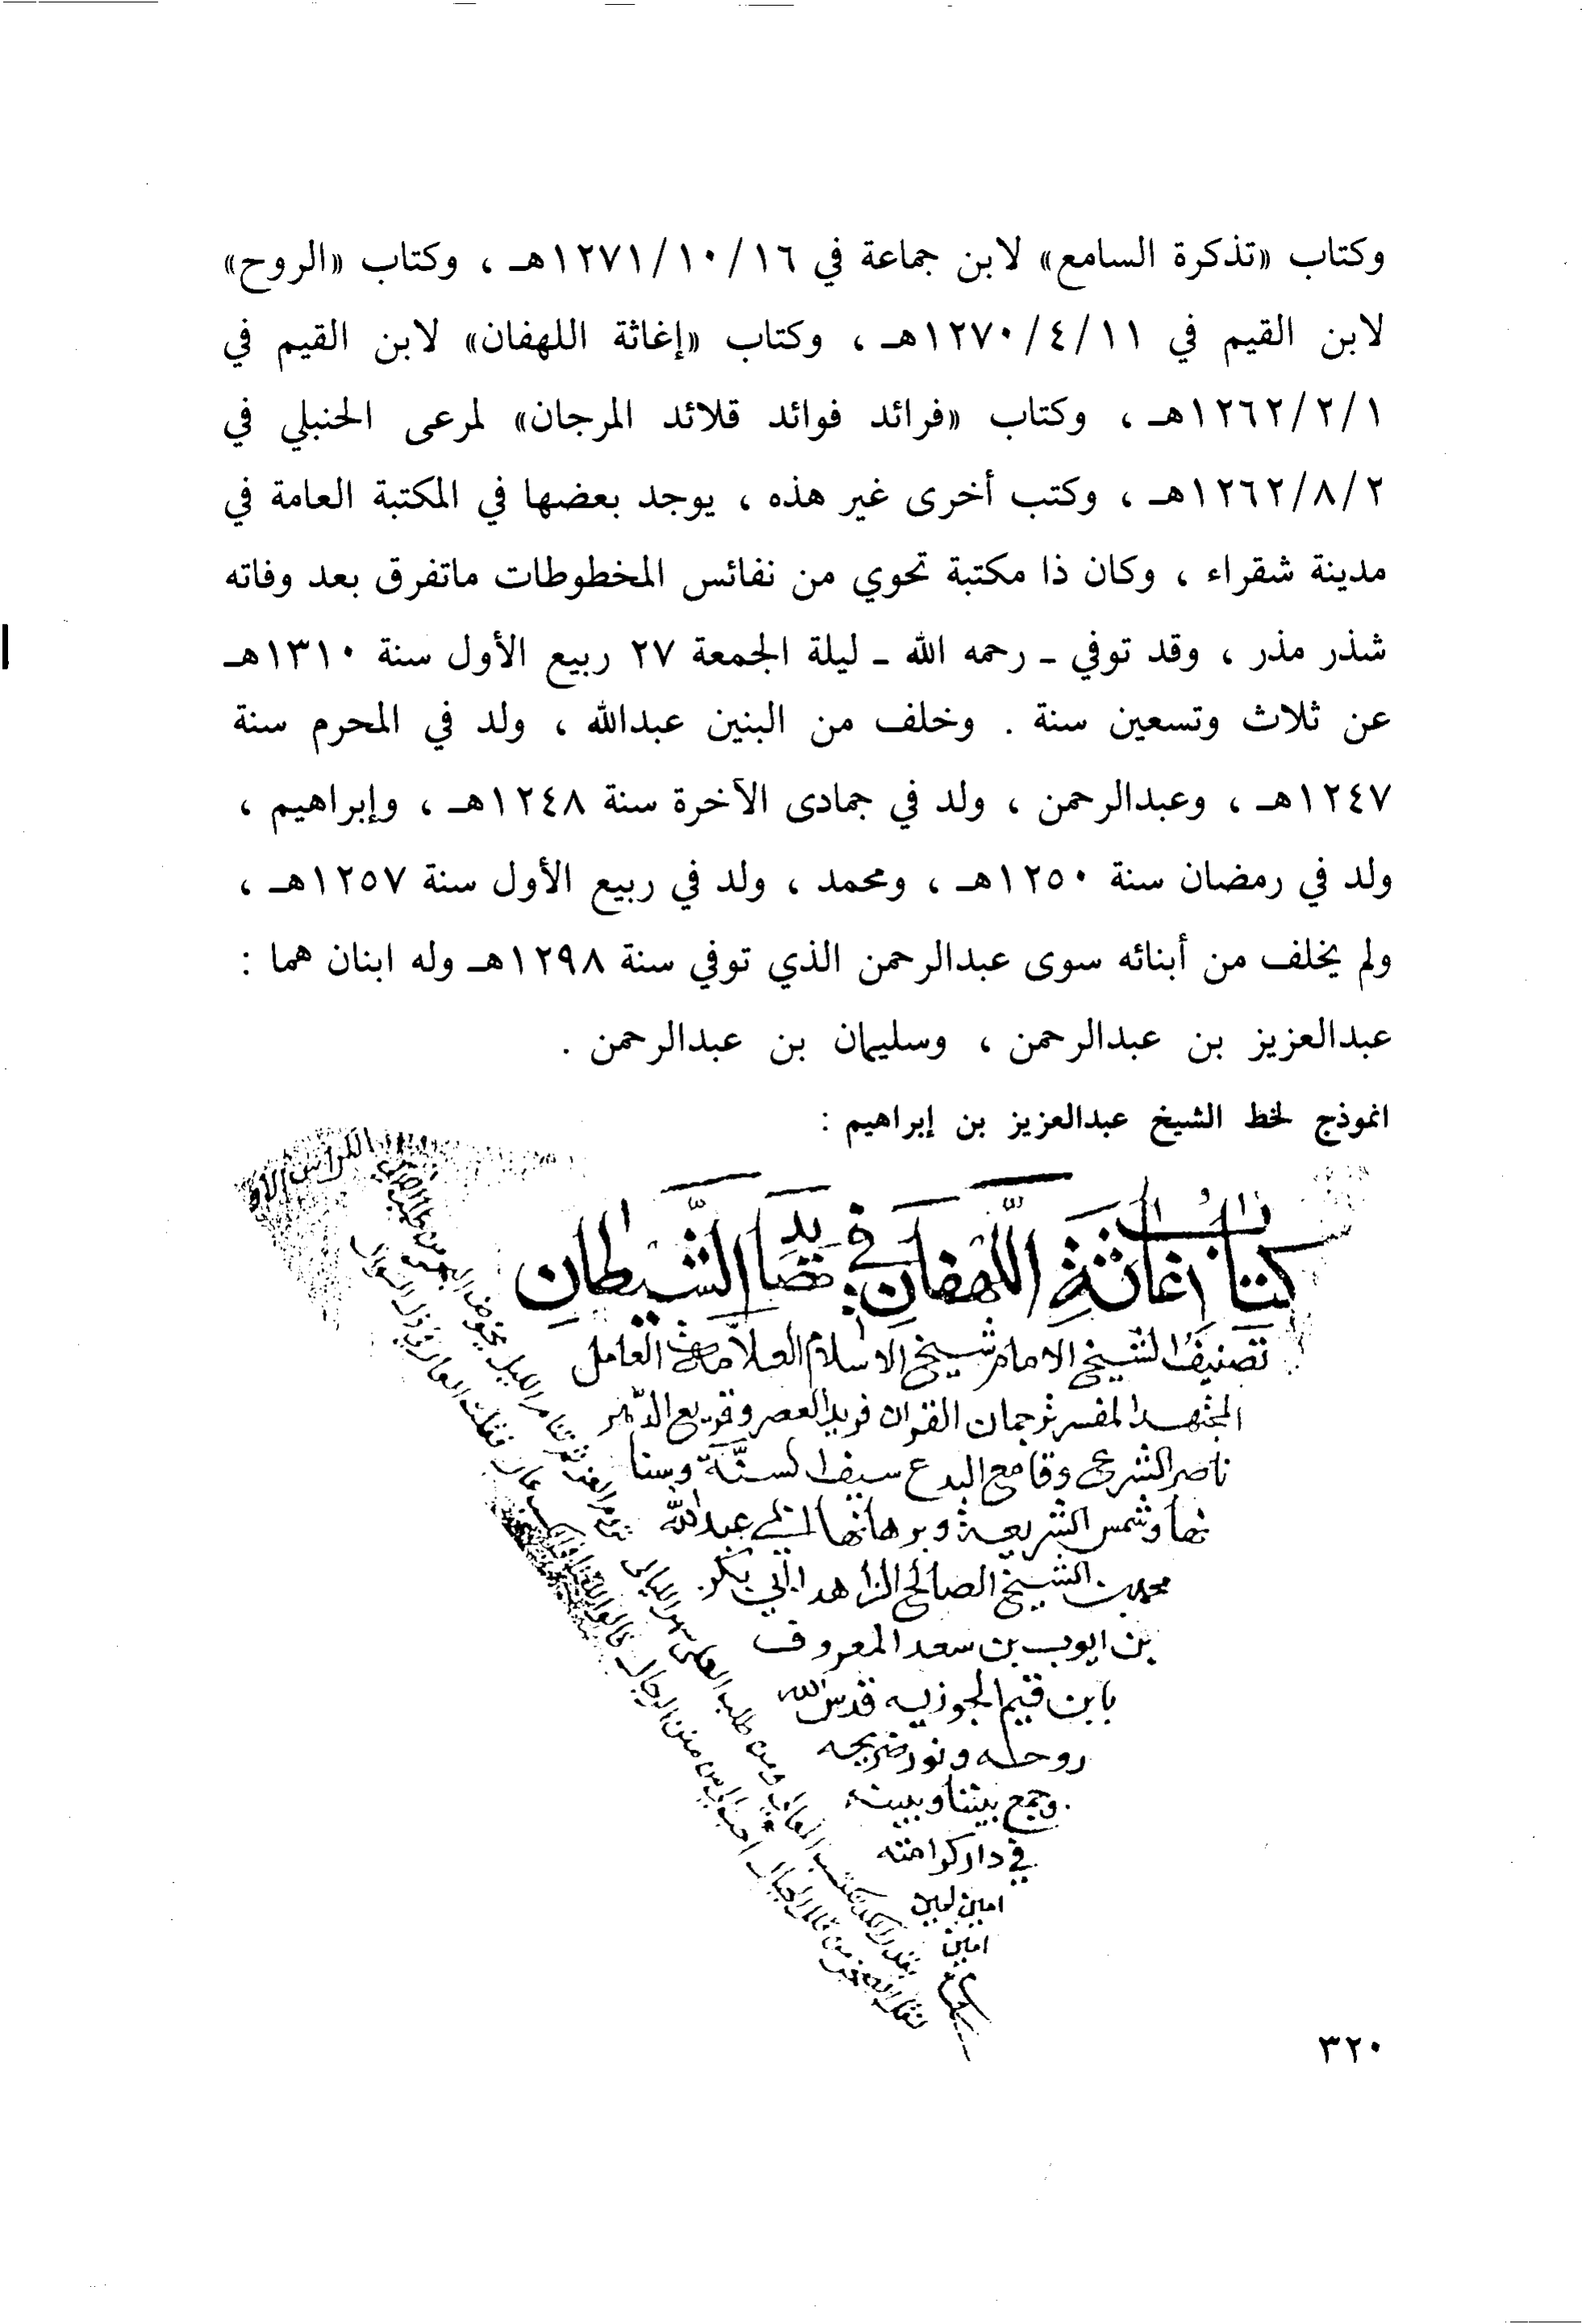 وكتاب «تذكرة السامع» لابن جماعة في ١٢٧١/١٠/١٦هـ ، وكتاب «الروح»
لابن القيم في ١٢٧٠/٤/١١هـ ، وكتاب «إغاثة اللهفان» لابن القيم في
١٢٦٢/٢/١هـ ، وكتاب «فرائد فوائد قلائد المرجان» لمرعى الحنبلي في
١٢٦٢/٨/٢هـ ، وكتب أخرى غير هذه ، يوجد بعضها في المكتبة العامة في
مدينة شقراء ، وكان ذا مكتبة تحوي من نفائس المخطوطات ماتفرق بعد وفاته
شذر مذر ، وقد توفي ـ رحمه الله ـ ليلة الجمعة ٢٧ ربيع الأول سنة ١٣١٠هـ
عن ثلاث وتسعين سنة . وخلف من البنين عبدالله ، ولد في المحرم سنة
١٢٤٧هـ ، وعبدالرحمن ، ولد في جمادى الآخرة سنة ١٢٤٨هـ ، وإبراهيم ،
ولد في رمضان سنة ١٢٥٠هـ ، ومحمد ، ولد في ربيع الأول سنة ١٢٥٧هـ ،
ولم يخلف من أبنائه سوى عبدالرحمن الذي توفي سنة ١٢٩٨هـ وله ابنان هما :
عبدالعزيز بن عبدالرحمن ، وسليمان بن عبدالرحمن .
انموذج لخط الشيخ عبدالعزيز بن إبراهيم :
كتاب اغاثة اللهفان في مصايد الشيطان
تصنيف الشيخ الامام شيخ الاسلام العلامة العامل
المجتهد المفسر ترجمان القران فريد العصر وقريع الدهر
ناصر الشرع وقامع البدع سيف السنة وسنا
نها وشمس الشريعة وبرهانها ابي عبد الله
محمد بن الشيخ الصالح الزاهد ابي بكر
بن ايوب بن سعد المعروف
بابن قيم الجوزيه قدس الله
روحه ونور ضريحه
وجمع بيننا وبينه
في دار كرامته
امين امين
امين
٣٢٠